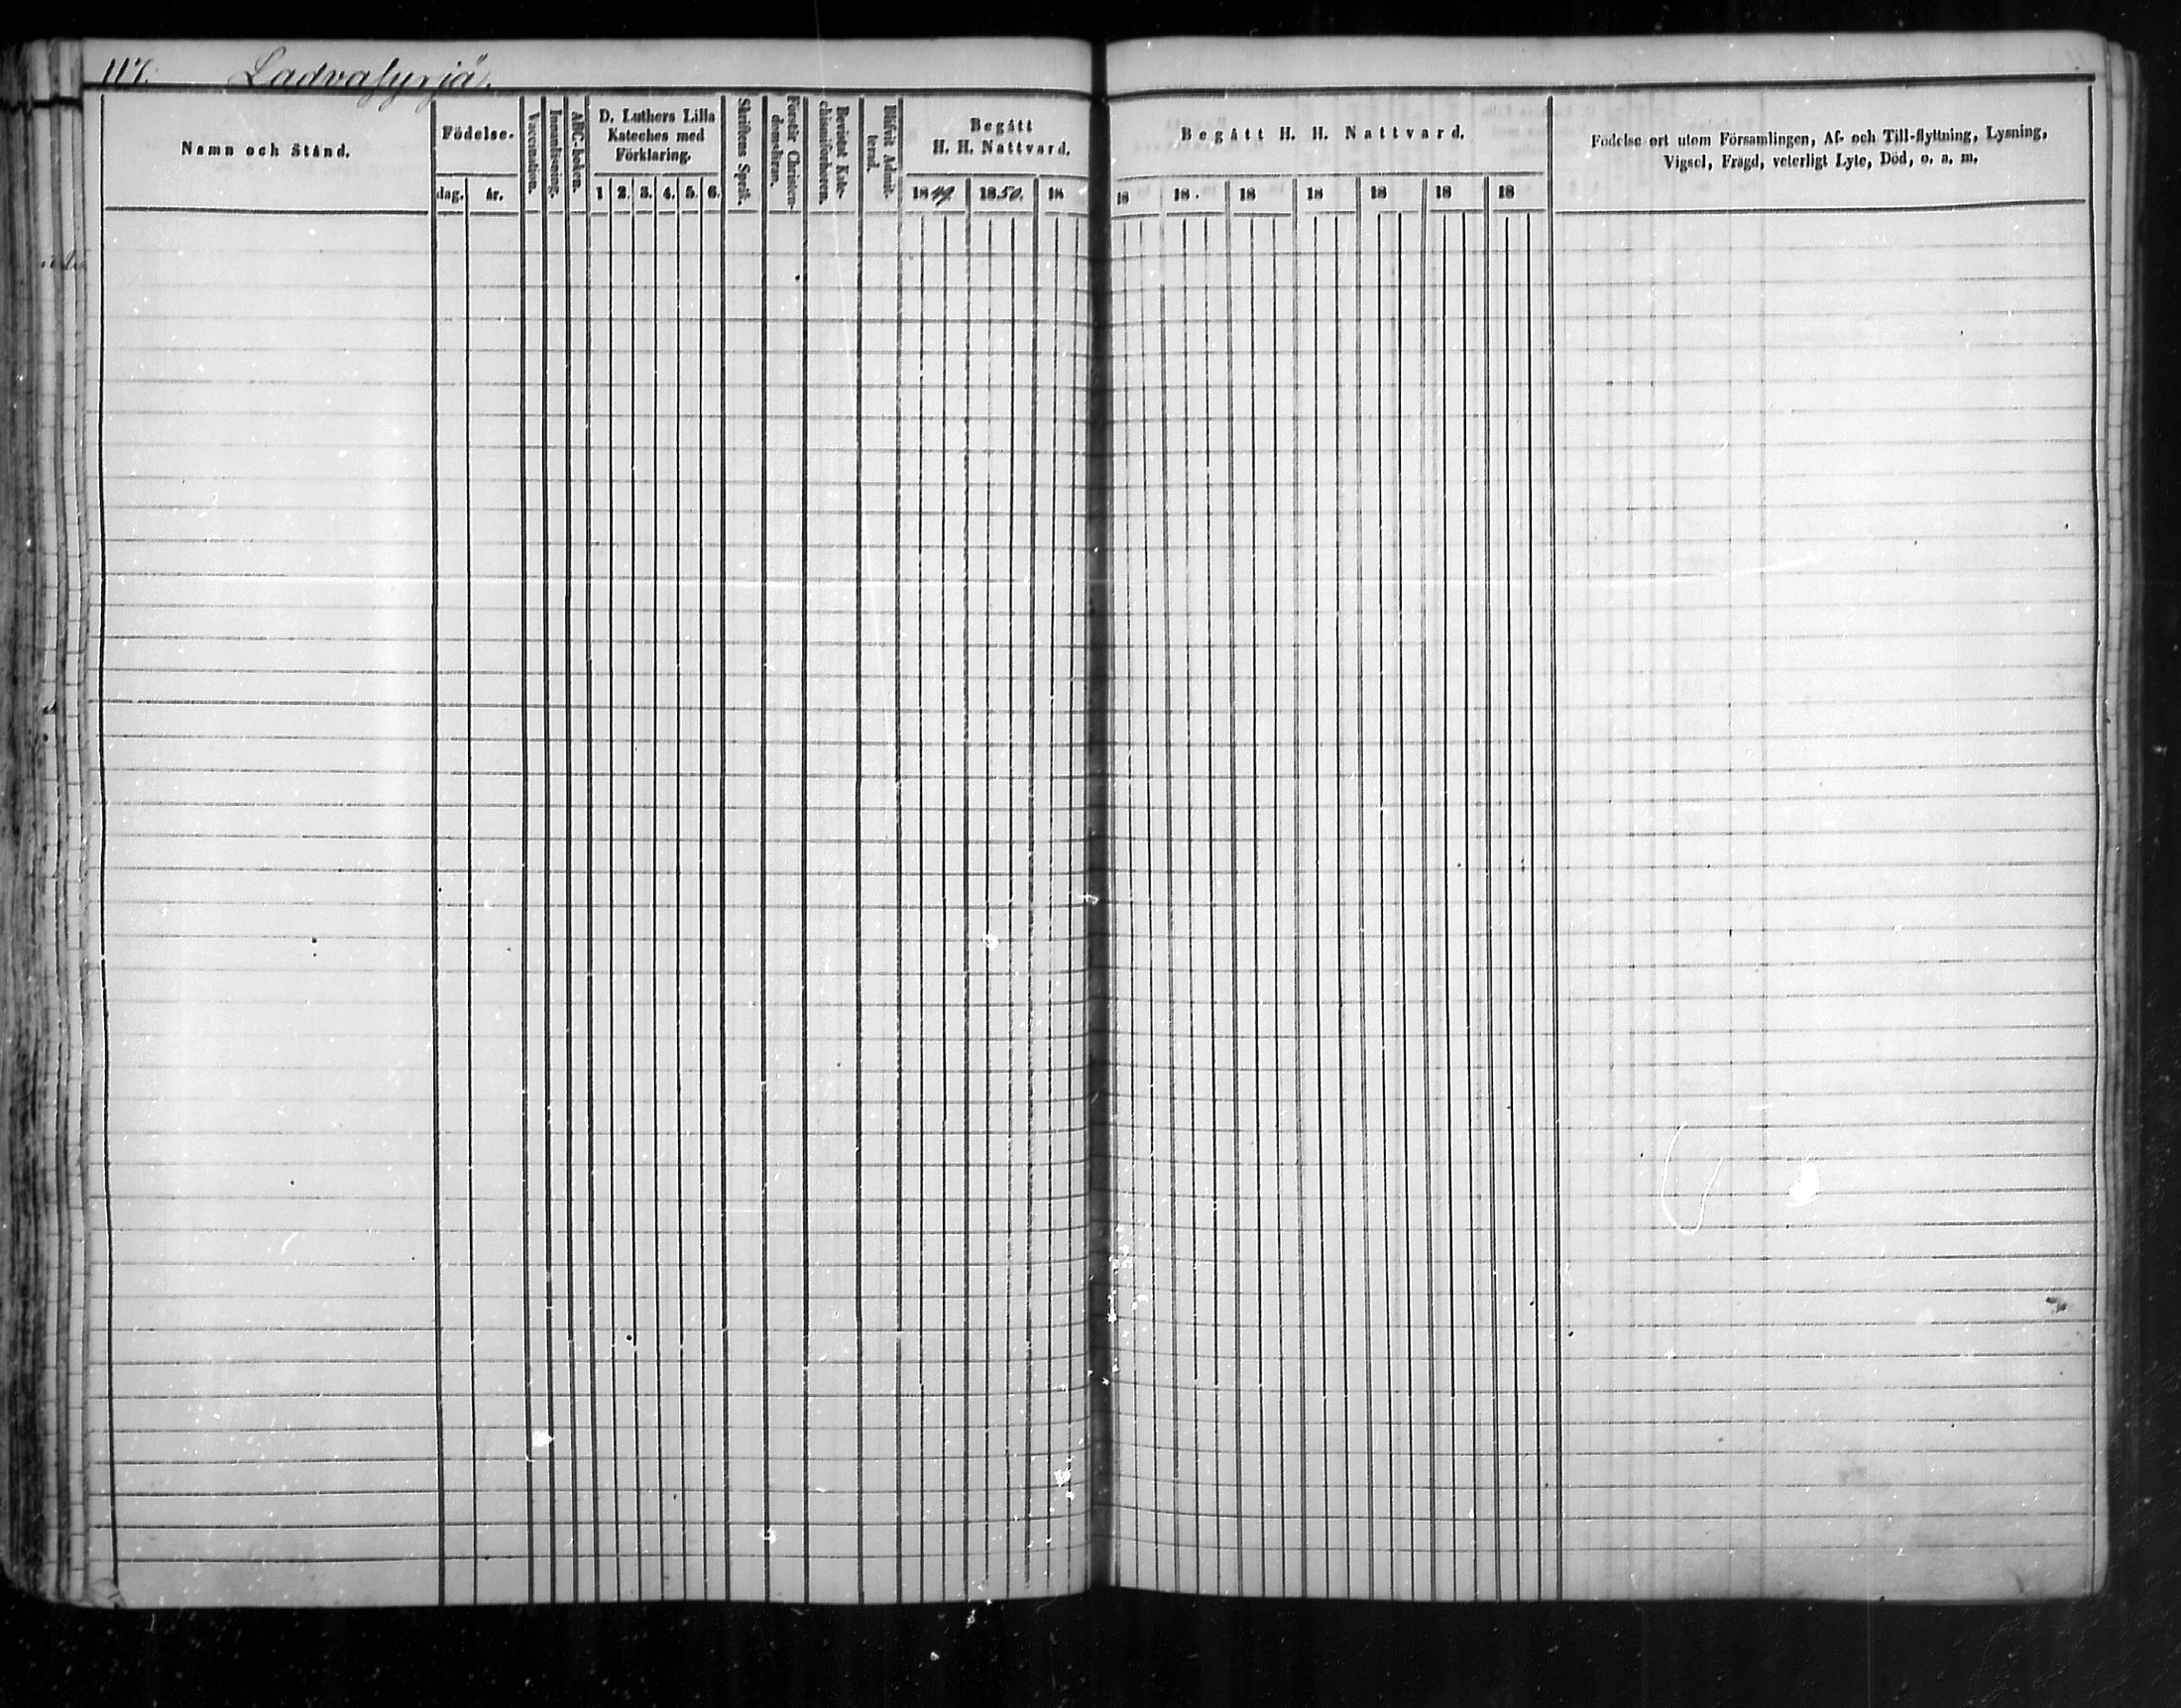 117. Ladvasyrjä.
Namn och Stånd.
Födelse-
dag. år.
Vaccination.
Innanläsning.
ABC-boken.
D. Luthers Lilla
Kateches med
Förklaring.
1 2. 3. 4. 5. 6.
Skriftens Språk.
Förstår Christen-
domsläran.
Bevistat Kate-
chismiförhören.
Blifvit Admit-
terad.
Begått
H. H. Nattvard.
1849. 1850. 18
Begått H. H. Nattvard.
18 18 18 18 18 18 18
Födelse ort utom Församlingen, Af- och Till-flyttning, Lysning,
Vigsel, Frägd, veterligt Lyte, Död, o. a. m.